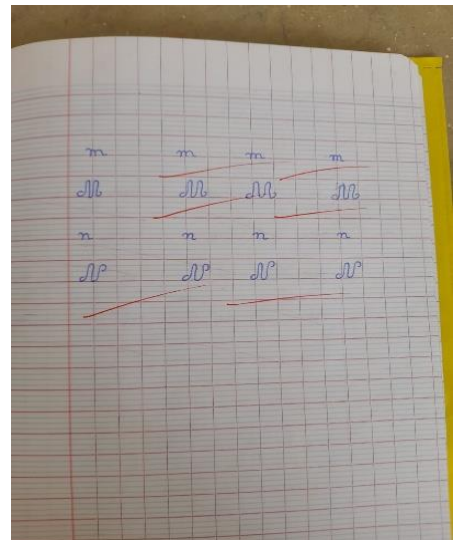 m m m m
M M M M
n n n n
N N N N